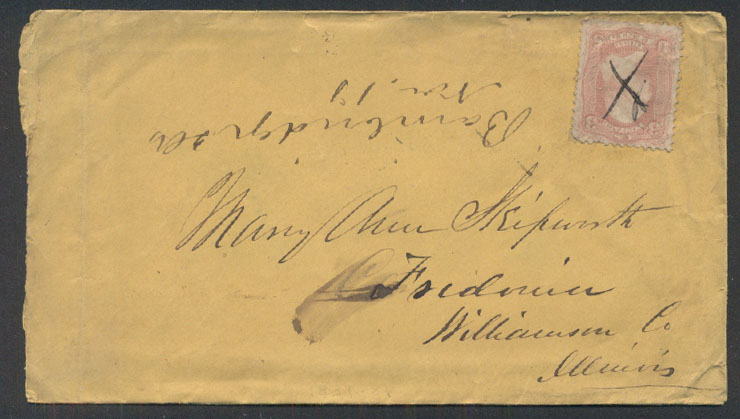 Bainbridge Ills
Nov. 19
Mary Ann Skipworth
Fredonia
Williamson Co
Illinois
X